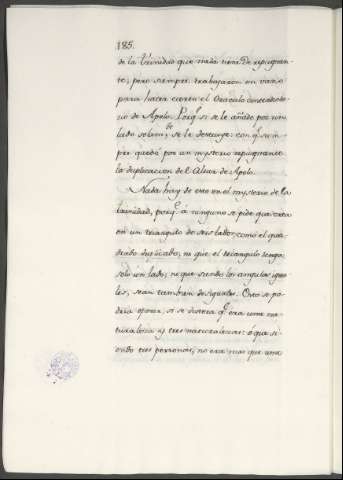 185.
de la trinidad que nada tiene de repugnan-
te; pero siempre trabajaron en vano
para hacer cierto el Oraculo
rio de Apolo. Porq.e si se le añade por un
lado solam.te se le destruye: con q.e siem-
pre quedó por un mysterio repugnante
la duplicacion del Altar de Apolo.
Nada hay de esto en el mysterio de la
trinidad, porq.e á ninguno se pide que crea
en un triangulo de seis lados, como el qua-
drado duplicado, ni que el triangulo tenga
solo un lado; ni que siendo los angulos igua-
les, sean tambien desiguales. Esto se po-
dria oponer, si se dixera q.e era una na-
turaleza y tres naturalezas: ó que si-
endo tres personas, no era mas que una